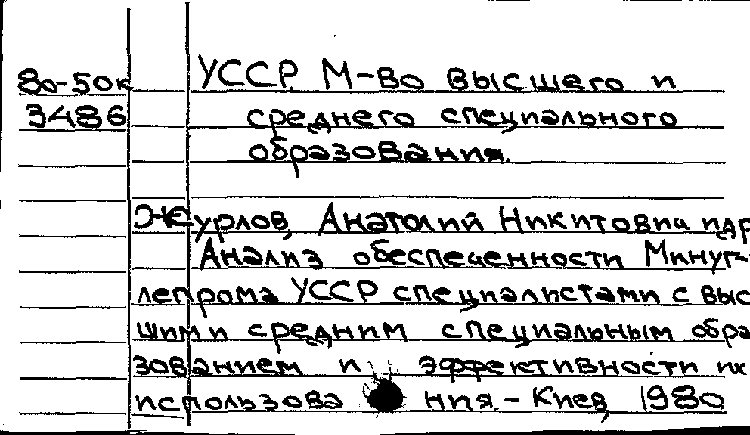 80-50к УССР. М-во высшего и
3486 среднего специального
образования.
Журлов, Анатолий Никитович и др
Анализ обеспеченности Минуг-
лепрома УССР специалистами с выс-
шим и средним специальным обра
зованием и эффективности их
использова ния. - Киев, 1980